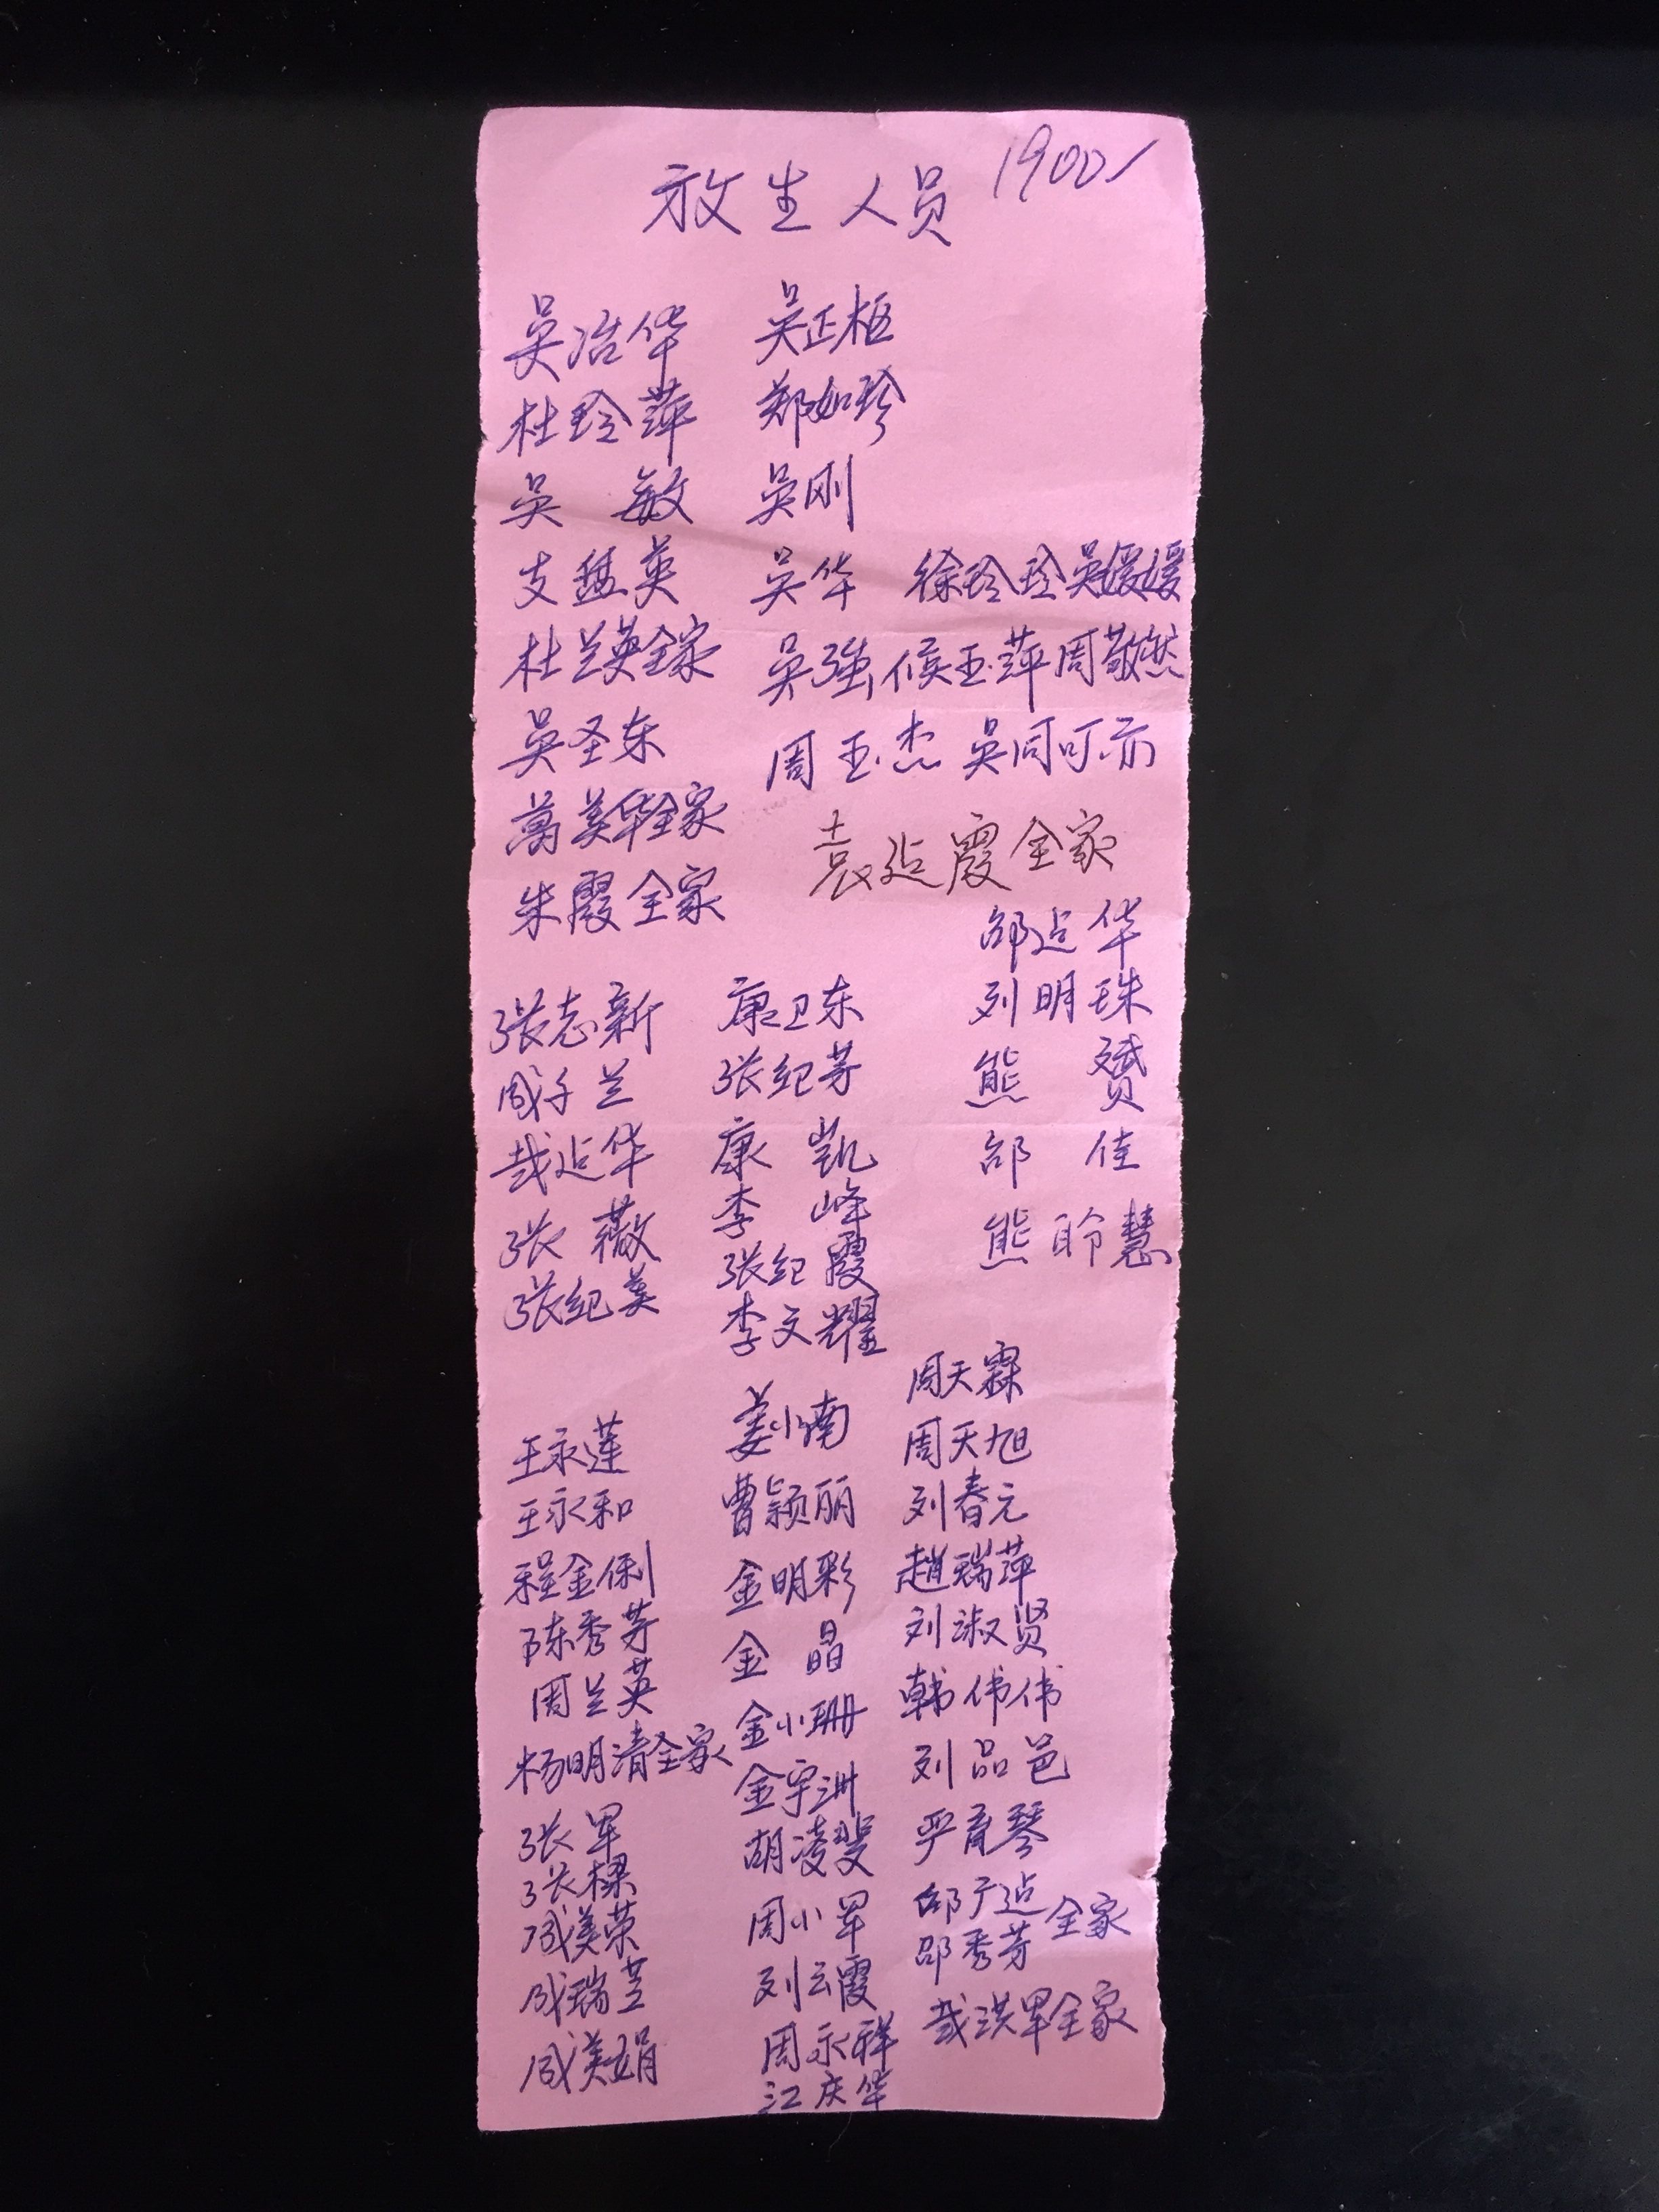 放生人员 1900/
吴冶华 吴正枢
杜玲萍 郑如珍
吴 敏 吴刚
支 英 吴华 徐玲玲 吴媛媛
杜兰英全家 吴强 候玉萍 周敬燃
吴圣东 周玉杰 吴同可示
萬美华全家
袁延霞全家
朱霞全家
邵延华
张志新 康卫东 刘明珠
成千兰 张纪芳 熊 赟
哉延华 康 凯 邵 佳
张 薇 李 峰 熊聆慧
张纪美 张纪霞
李文耀
周天霖
王永莲 姜小楠 周天旭
王永和 曹颖丽 刘春元
程金俐 金明彩 趙瑞萍
陈秀芳 金 晶 刘淑贤
周兰英 金小珊 韩伟伟
杨明清全家 金宇洲 刘品邑
张军 胡凌斐 严育琴
张樑 周小军 邵广延 全家
成美荣 邵秀芳
成瑞芝 刘云霞 哉洪军全家
成美娟 周永祥
江庆华